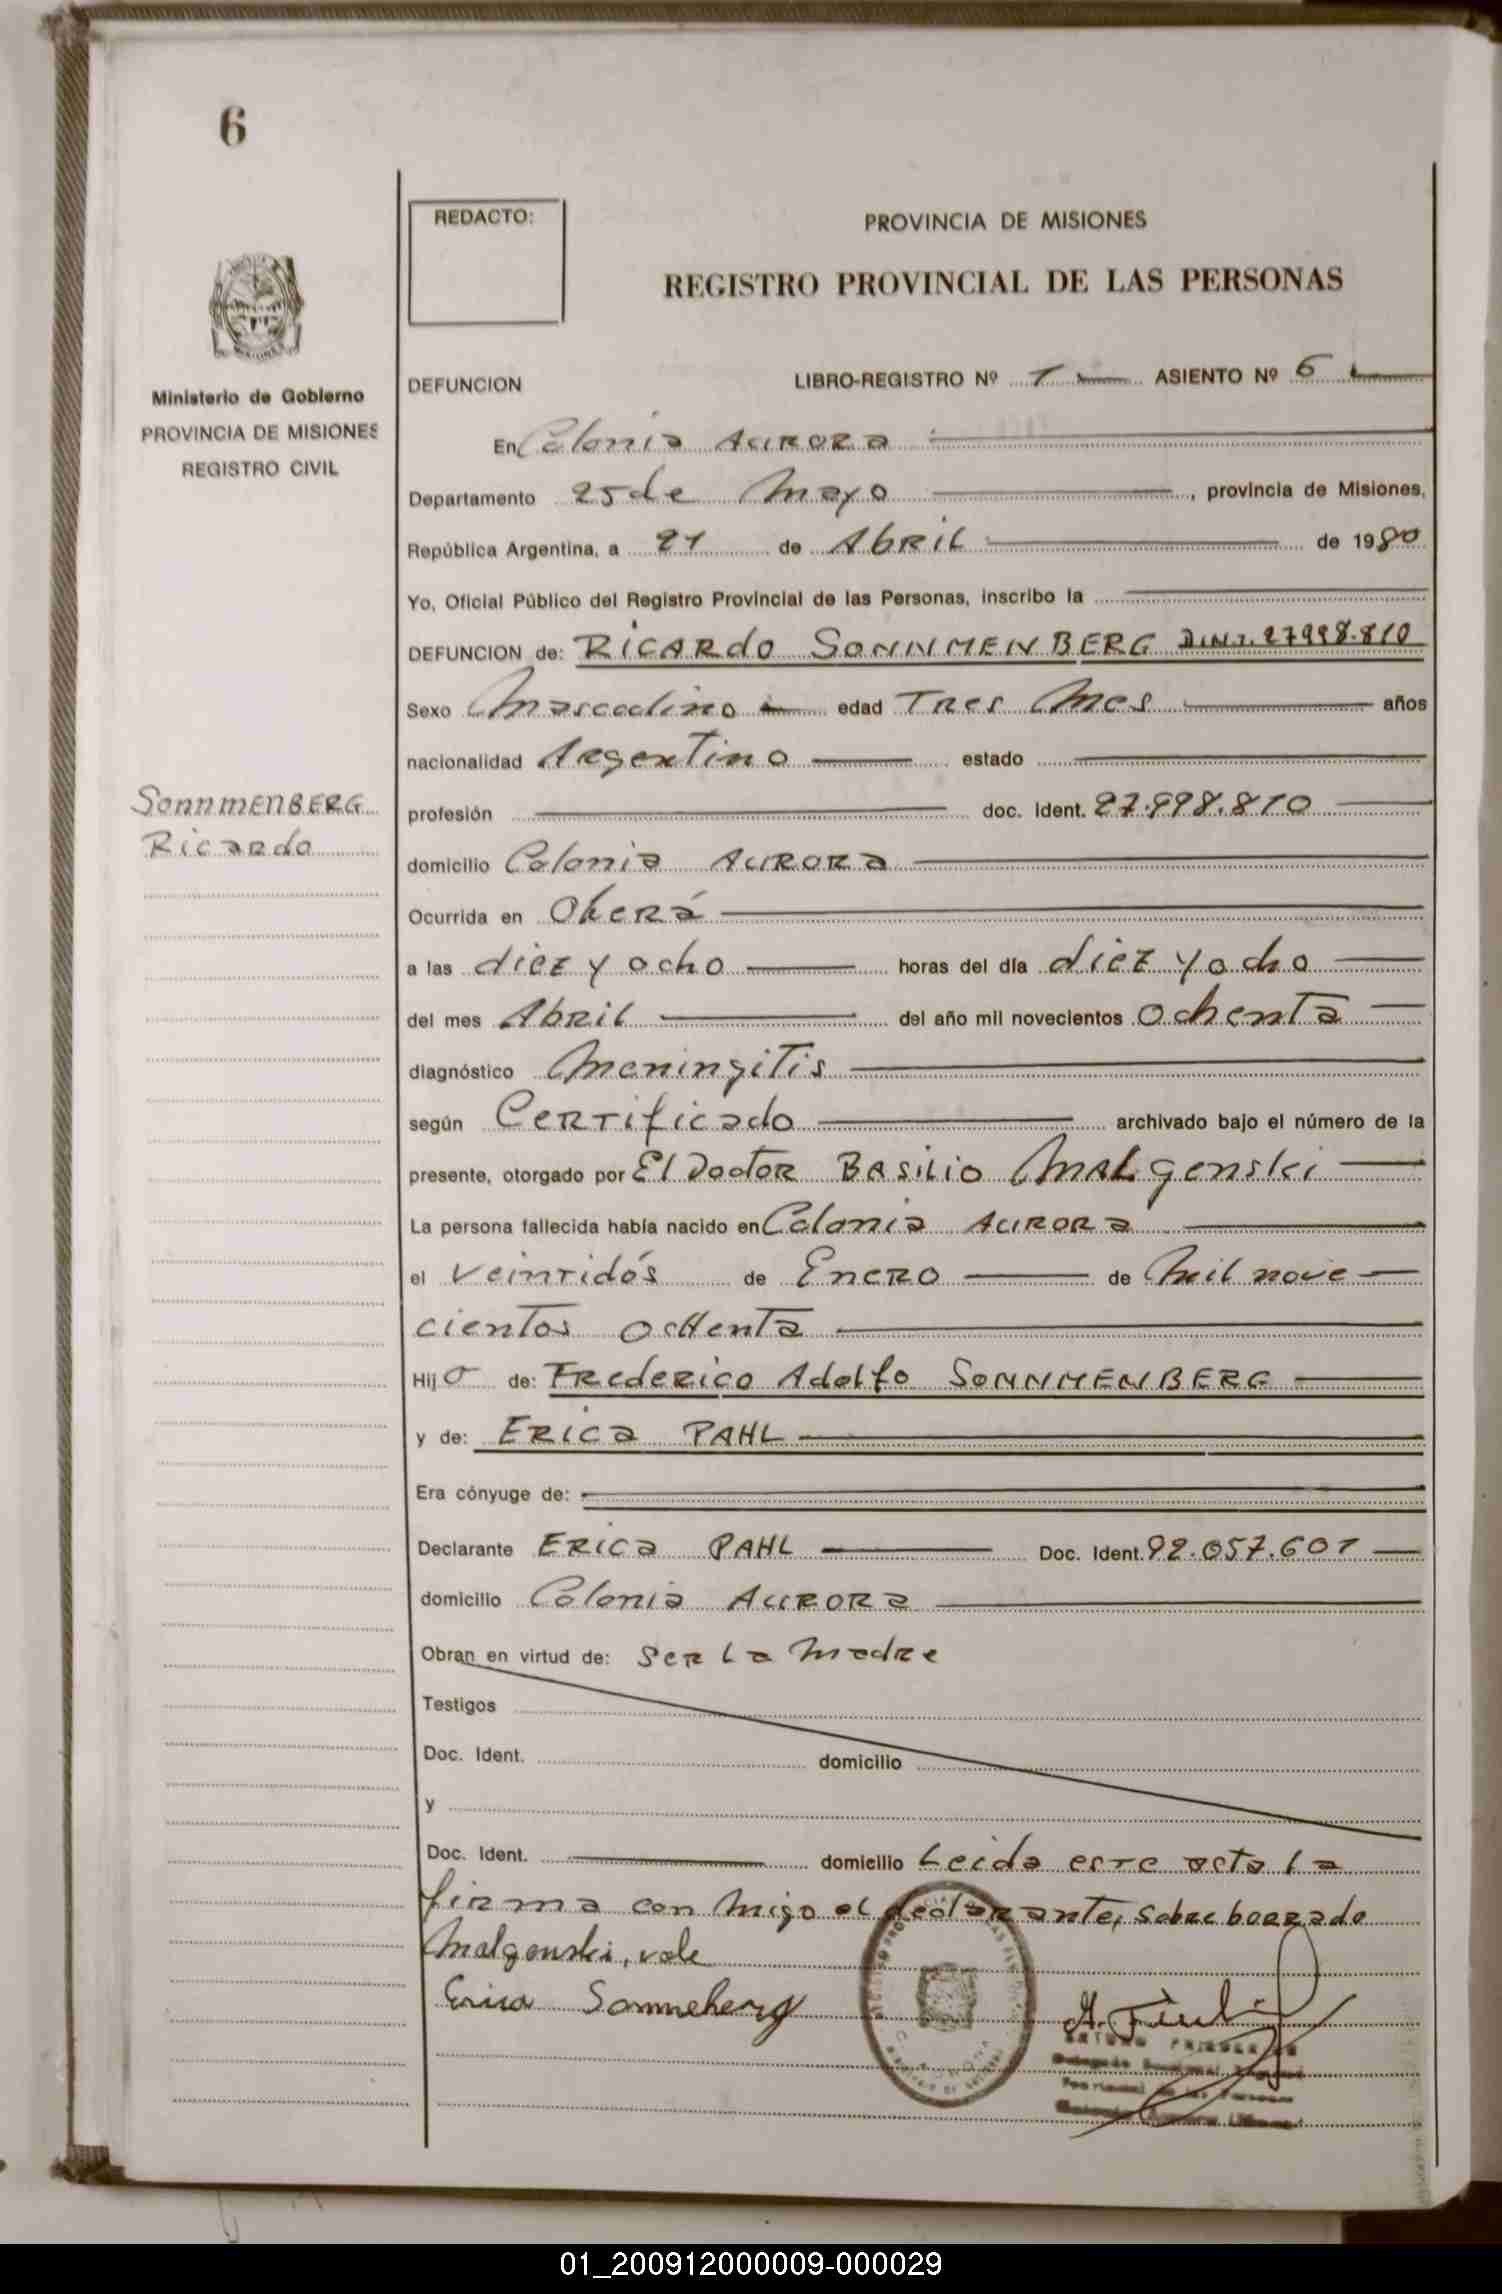 6
REDACTO:
PROVINCIA DE MISIONES
REGISTRO PROVINCIAL DE LAS PERSONAS
Ministerio de Gobierno
PROVINCIA DE MISIONES
REGISTRO CIVIL
DEFUNCION LIBRO-REGISTRO Nº 1 ASIENTO Nº 6
En Colonia Aurora
Departamento 25 de Mayo, provincia de Misiones,
República Argentina, a 21 de Abril de 1980
Yo, Oficial Público del Registro Provincial de las Personas, inscribo la
DEFUNCION de: RICARdO SONNMENBERG D.N.I. 27998.810
Sexo Masculino edad Tres Mes años
nacionalidad Argentino estado
Sonnmenberg
Ricardo
profesión doc. Ident. 27.998.810
domicilio Colonia Aurora
Ocurrida en Oberá
a las diez y ocho horas del día diez y ocho
del mes Abril del año mil novecientos ochenta
diagnóstico Meningitis
según Certificado archivado bajo el número de la
presente, otorgado por El Doctor Basilio Malgenski
La persona fallecida había nacido en Colonia Aurora
el veintidós de Enero de Mil nove
cientos ochenta
Hijo de: Frederico Adolfo SONNMENBERG
y de: Erica PAHL
Era cónyuge de:
Declarante Erica PAHL Doc. Ident. 92.057.601
domicilio Colonia Aurora
Obran en virtud de: Ser La Madre
Testigos
Doc. Ident. domicilio
y
Doc. Ident. domicilio Leida este acta la
firma con migo el declarante, sobre borrado
Malgenski, vale
Erica Sonneberg
01_200912000009-000029